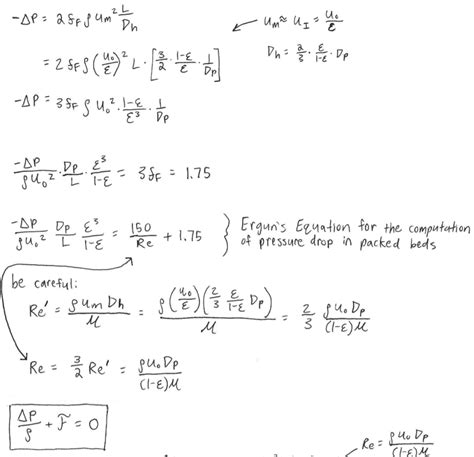 -ΔP = 2 f_F ρ u_m² L/D_h
u_m ≈ u_I = u_0/ε
= 2 f_F ρ (u_0/ε)² L · [3/2 · 1-ε/ε · 1/D_p]
D_h = 2/3 · ε/1-ε · D_p
-ΔP = 3 f_F ρ u_0² · 1-ε/ε³ · 1/D_p
-ΔP/ρu_0² · D_p/L · ε³/1-ε = 3 f_F = 1.75
-ΔP/ρu_0² D_p/L ε³/1-ε = 150/Re + 1.75 } Ergun's Equation for the computation
of pressure drop in packed beds
be careful:
Re' = ρ u_m D_h/μ = ρ(u_0/ε)(2/3 ε/1-ε D_p)/μ = 2/3 ρ u_0 D_p/(1-ε)μ
Re = 3/2 Re' = ρ u_0 D_p/(1-ε)μ
ΔP/ρ + F = 0
Re = ρ u_0 D_p/(1-ε)μ